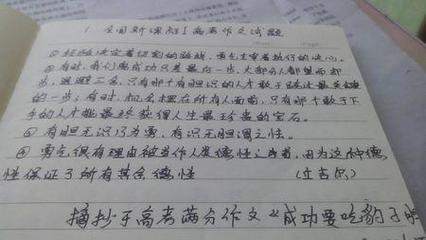 1 全国新课标Ⅰ高考作文试题
① 经验决定着切割的路线，勇气主宰着执行的决心。
② 有时，我们离成功只差最后一步，大部分人都望而却
步，退避三舍，只有那个有胆识的人才敢于跳过最莫测
的一步；有时，机会摆在所有人面前，只有那个敢于下
手的人才能最终获得人生最珍贵的宝石。
③ 有胆无识乃为莽，有识无胆谓之怯。
④ 勇气很有理由被当作人类德性之首，因为这种德
性保证了所有其余德性 (丘吉尔)
摘抄于高考满分作文《成功要吃豹子胆